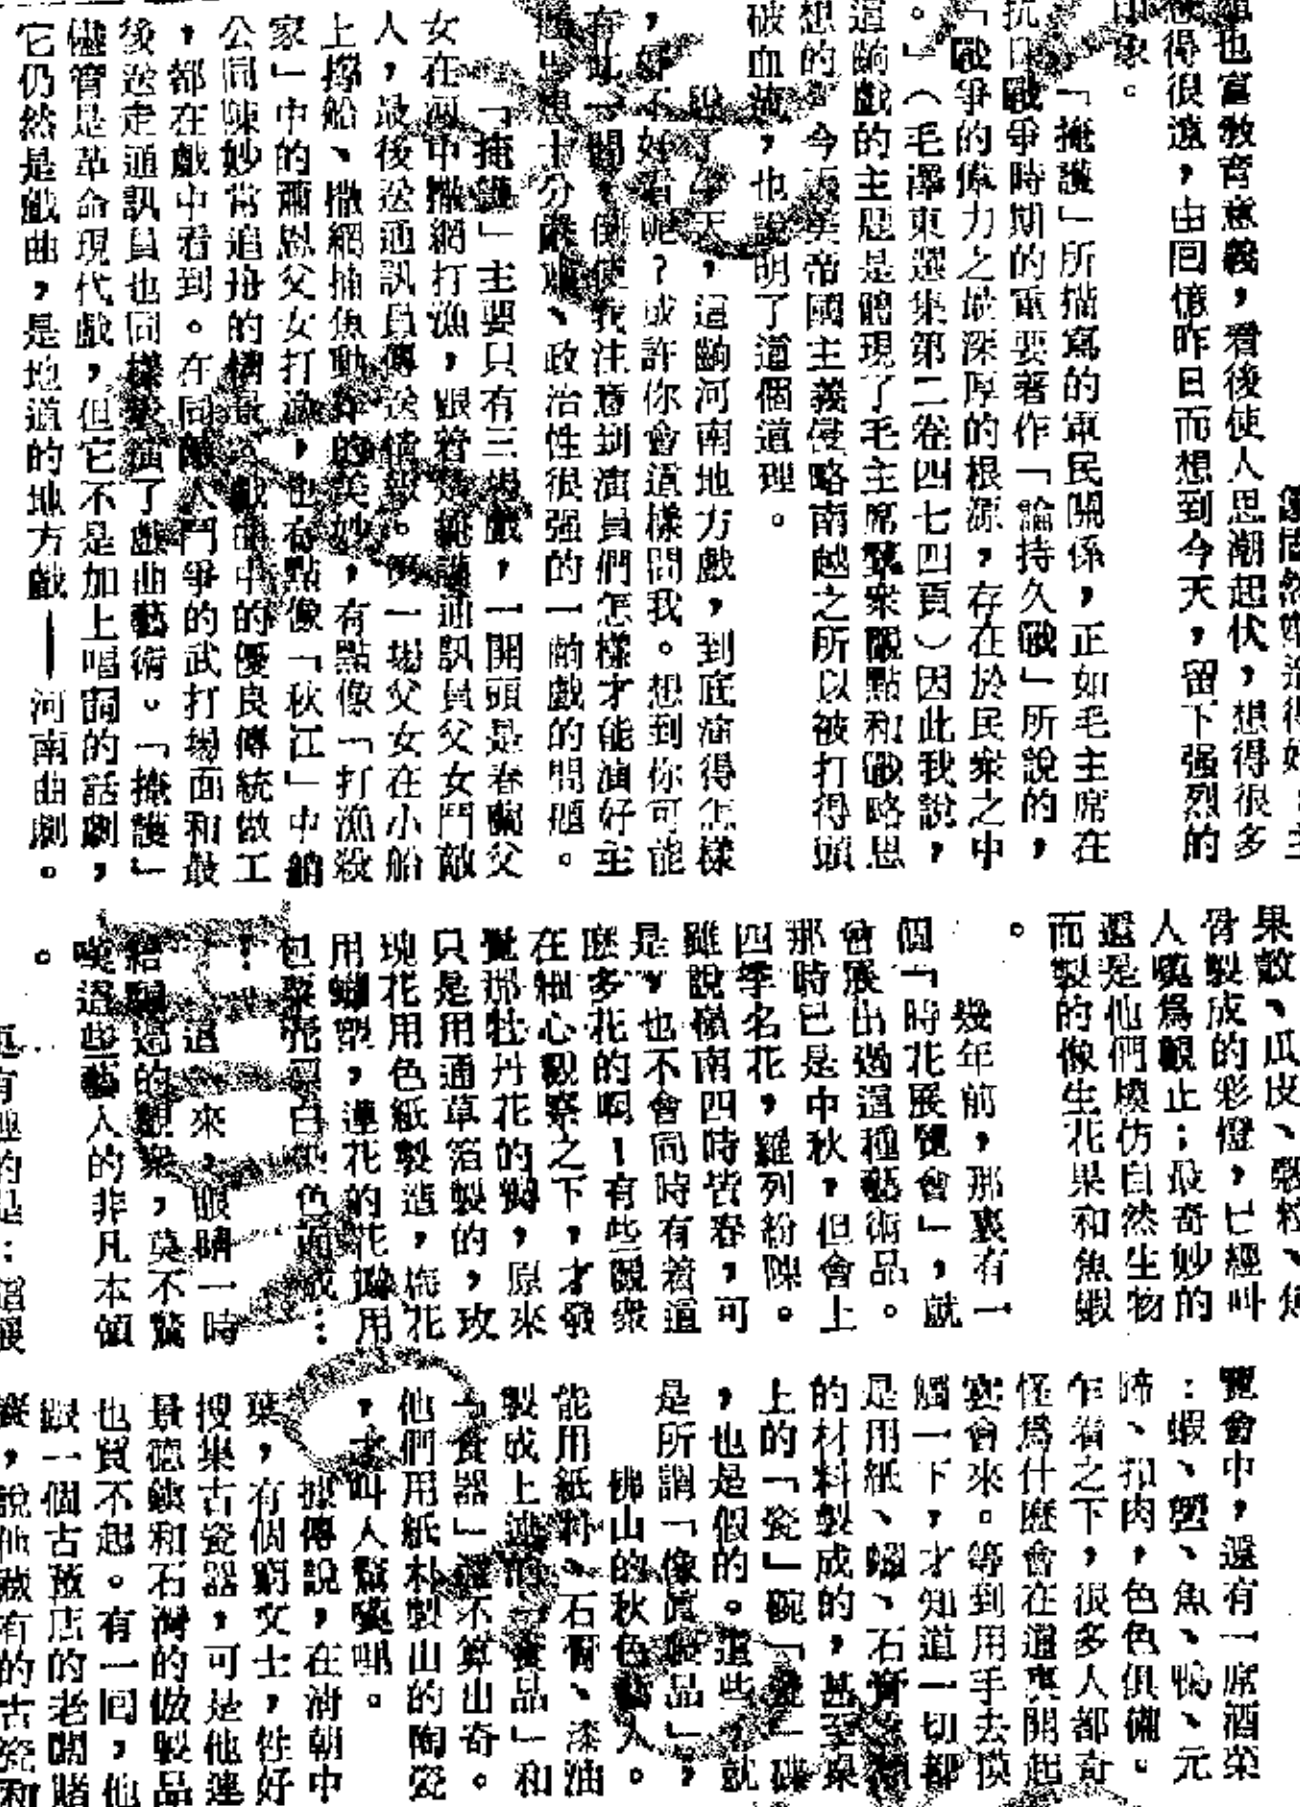 也富教育意義，看後使人思潮起伏，想得很多
想得很遠，由回憶昨日而想到今天，留下强烈的
印象。
「掩護」所描寫的軍民關係，正如毛主席在
抗日戰爭時期的重要著作「論持久戰」所說的，
「戰爭的偉力之最深厚的根源，存在於民衆之中
。」（毛澤東選集第二卷四七四頁）因此我說，
這齣戲的主題是體現了毛主席羣衆觀點和戰略思
想的。今天美帝國主義侵略南越之所以被打得頭
破血流，也說明了這個道理。
說了半天，這齣河南地方戲，到底演得怎樣
，好不好看呢？或許你會這樣問我。想到你可能
有此一問，便使我注意到演員們怎樣才能演好主
題思想十分嚴肅、政治性很强的一齣戲的問題。
「掩護」主要只有三場戲，一開頭是春蘭父
女在河中撒網打漁，跟着是掩護通訊員父女鬥敵
人，最後送通訊員傳送情報。第一場父女在小船
上撐船、撒網捕魚動作的美妙，有點像「打漁殺
家」中的蕭恩父女打漁，也有點像「秋江」中艄
公同陳妙常追舟的情景。戲曲中的優良傳統做工
，都在戲中看到。在同敵人鬥爭的武打場面和最
後送走通訊員也同樣發演了戲曲藝術。「掩護」
儘管是革命現代戲，但它不是加上唱詞的話劇，
它仍然是戲曲，是地道的地方戲——河南曲劇。
果殼、瓜皮、穀粒、魚
骨製成的彩燈，已經叫
人嘆爲觀止；最奇妙的
還是他們模仿自然生物
而製的像生花果和魚蝦
。
幾年前，那裏有一
個「時花展覽會」，就
會展出過這種藝術品。
那時已是中秋，但會上
四季名花，羅列紛陳。
雖說嶺南四時皆春，可
是，也不會同時有着這
麽多花的啊！有些觀衆
在細心觀察之下，才發
覺那牡丹花的瓣，原來
只是用通草箔製的，玫
瑰花用色紙製造，梅花
用蠟塑，蓮花的花瓣用
包粟花染白染色而成…
…！
這一來，眼睛一時
給瞞過的觀衆，莫不驚
嘆這些藝人的非凡本領
。
更有趣的是：這展
覽會中，還有一席酒菜
：蝦、蟹、魚、鴨、元
蹄、扣肉，色色俱備。
乍看之下，很多人都奇
怪爲什麽會在這裏開起
宴會來。等到用手去摸
觸一下，才知道一切都
是用紙、蠟、石膏
的材料製成的，甚至桌
上的「瓷」碗「瓷」碟
，也是假的。這些，就
是所謂「像眞製品」，
佛山的秋色藝人。
能用紙料、石膏、漆油
製成上述的「食品」和
「食器」還不算出奇。
他們用紙朴製出的陶瓷
，才叫人驚嘆哩。
據傳說，在淸朝中
葉，有個窮文士，性好
搜集古瓷器，可是他連
景德鎮和石灣的倣製品
也買不起。有一回，他
跟一個古董店的老闆賭
，說他藏有的古瓷和